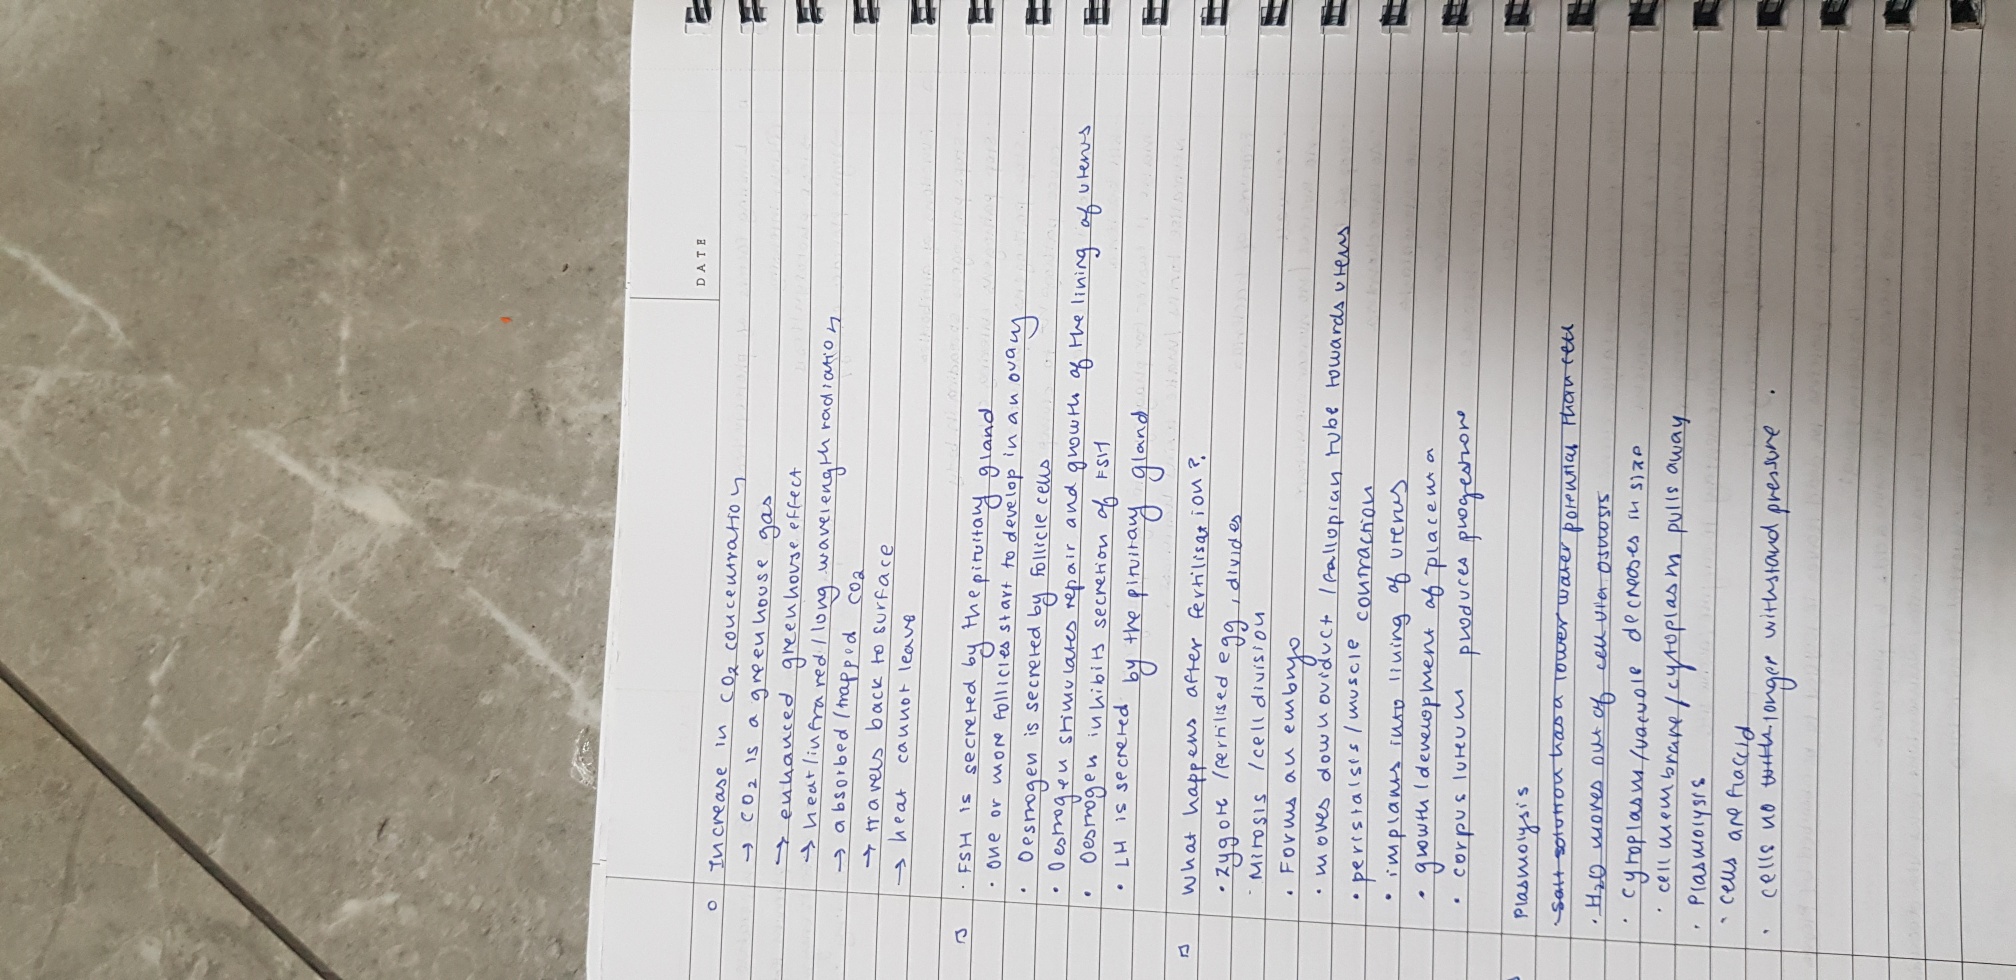 DATE
Increase in CO2 concentration
→ CO2 is a greenhouse gas
→ enhanced greenhouse effect
→ heat/infrared/long wavelength radiation
→ absorbed/trapped CO2
→ travels back to surface
→ heat cannot leave
• FSH is secreted by the pituitary gland
• One or more follicles start to develop in an ovary
• Oestrogen is secreted by follicle cells
• Oestrogen stimulates repair and growth of the lining of uterus
• Oestrogen inhibits secretion of FSH
• LH is secreted by the pituitary gland
What happens after fertilisation?
• Zygote/fertilised egg, divides
• Mitosis/cell division
• Forms an embryo
• moves down oviduct/fallopian tube towards uterus
• peristalsis/muscle contraction
• implants into lining of uterus
• growth/development of placenta
• corpus luteum produces progesterone
Plasmolysis
• Salt solution has a lower water potential than cell
• H2O moves out of cell via osmosis
• Cytoplasm/vacuole decreases in size
• cell membrane/cytoplasm pulls away
• Plasmolysis
• cells are flaccid
• cells no longer withstand pressure.